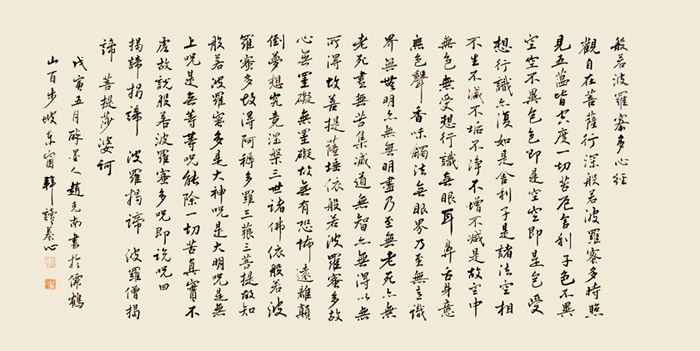 般若波羅蜜多心經
觀自在菩薩行深般若波羅蜜多時照
見五蘊皆空度一切苦厄舍利子色不異
空空不異色色即是空空即是色受
想行識亦復如是舍利子是諸法空相
不生不滅不垢不淨不增不減是故空中
無色無受想行識無眼耳鼻舌身意
無色聲香味觸法無眼界乃至無意識
界無無明亦無無明盡乃至無老死亦無
老死盡無苦集滅道無智亦無得以無
所得故菩提薩埵依般若波羅蜜多故
心無罣礙無罣礙故無有恐怖遠離顛
倒夢想究竟涅槃三世諸佛依般若波
羅蜜多故得阿耨多羅三藐三菩提故知
般若波羅蜜多是大神咒是大明咒是無
上咒是無等等咒能除一切苦真實不
虛故說般若波羅蜜多咒即說咒曰
揭諦揭諦 波羅揭諦 波羅僧揭
諦 菩提莎婆訶
戊寅五月醉墨人趙克南書於鶴
山百步坡東窗